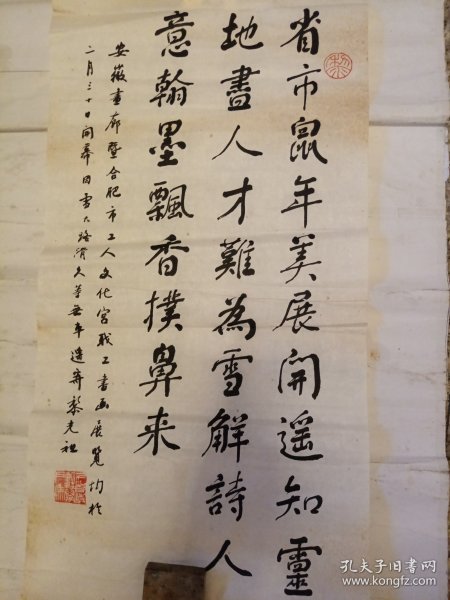 省市鼠年美展開遥知靈
地盡人才難為雪解詩人
意翰墨飄香撲鼻来
安徽畫廊暨合肥市工人文化宫职工書画展覽均於
二月三十日開幕因雪大路滑久等無車遥寄黎光祖
孔夫子旧书网
www.kongfz.com